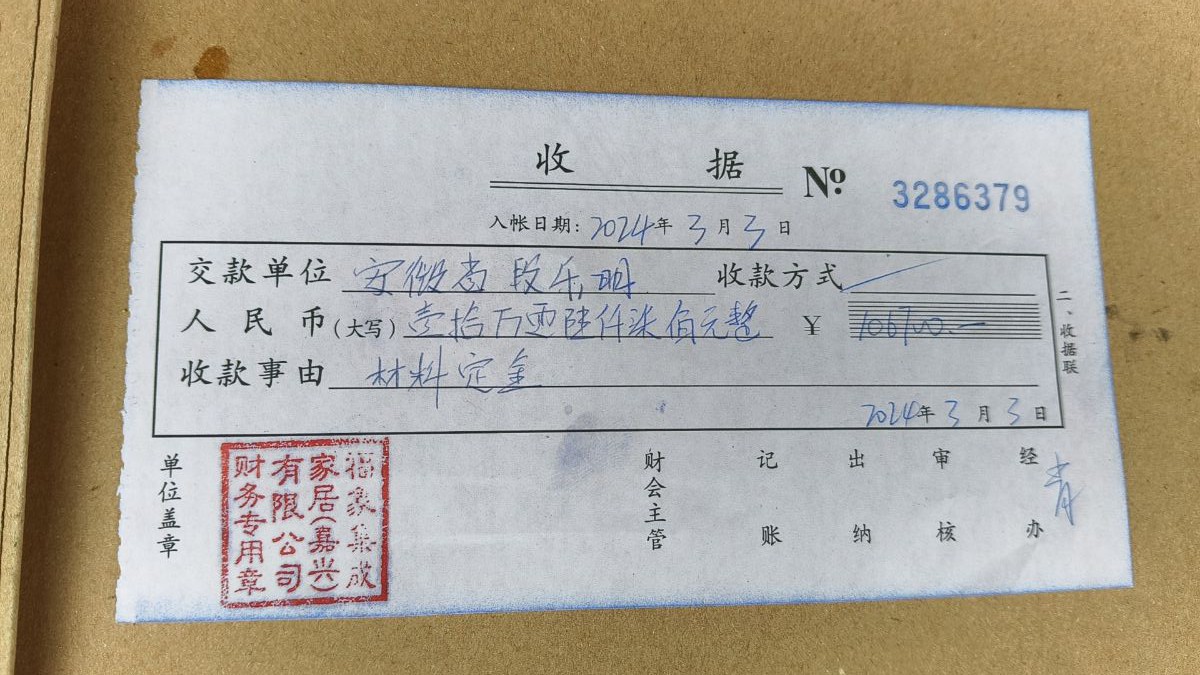 收 据 № 3286379
入帐日期：2024年 3 月 3 日
交款单位 安徽省 段乐明 收款方式
人 民 币（大写）壹拾万零陆仟柒佰元整 ¥ 106700.—
收款事由 材料定金
2024年 3 月 3 日
二、收据联
单位盖章
福象集成
家居（嘉兴）
有限公司
财务专用章
财会主管 记账 出纳 审核 经办 青